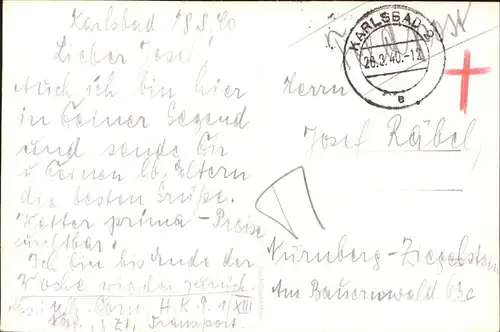 Karlsbad 28.2.40
Lieber Josef!
Auch ich bin hier
in Deiner Gegend
und sende Dir
u Deinen lb. Eltern
die besten Grüße.
Wetter prima - Preise
Ich bin bis Ende der
Woche wieder zurück.
H.K.P. XIII
Transport.
KARLSBAD 2
28.2.40.-12
e
Herrn
Josef Räbel,
Nürnberg-Ziegelstein
Am Bauernwald 63c